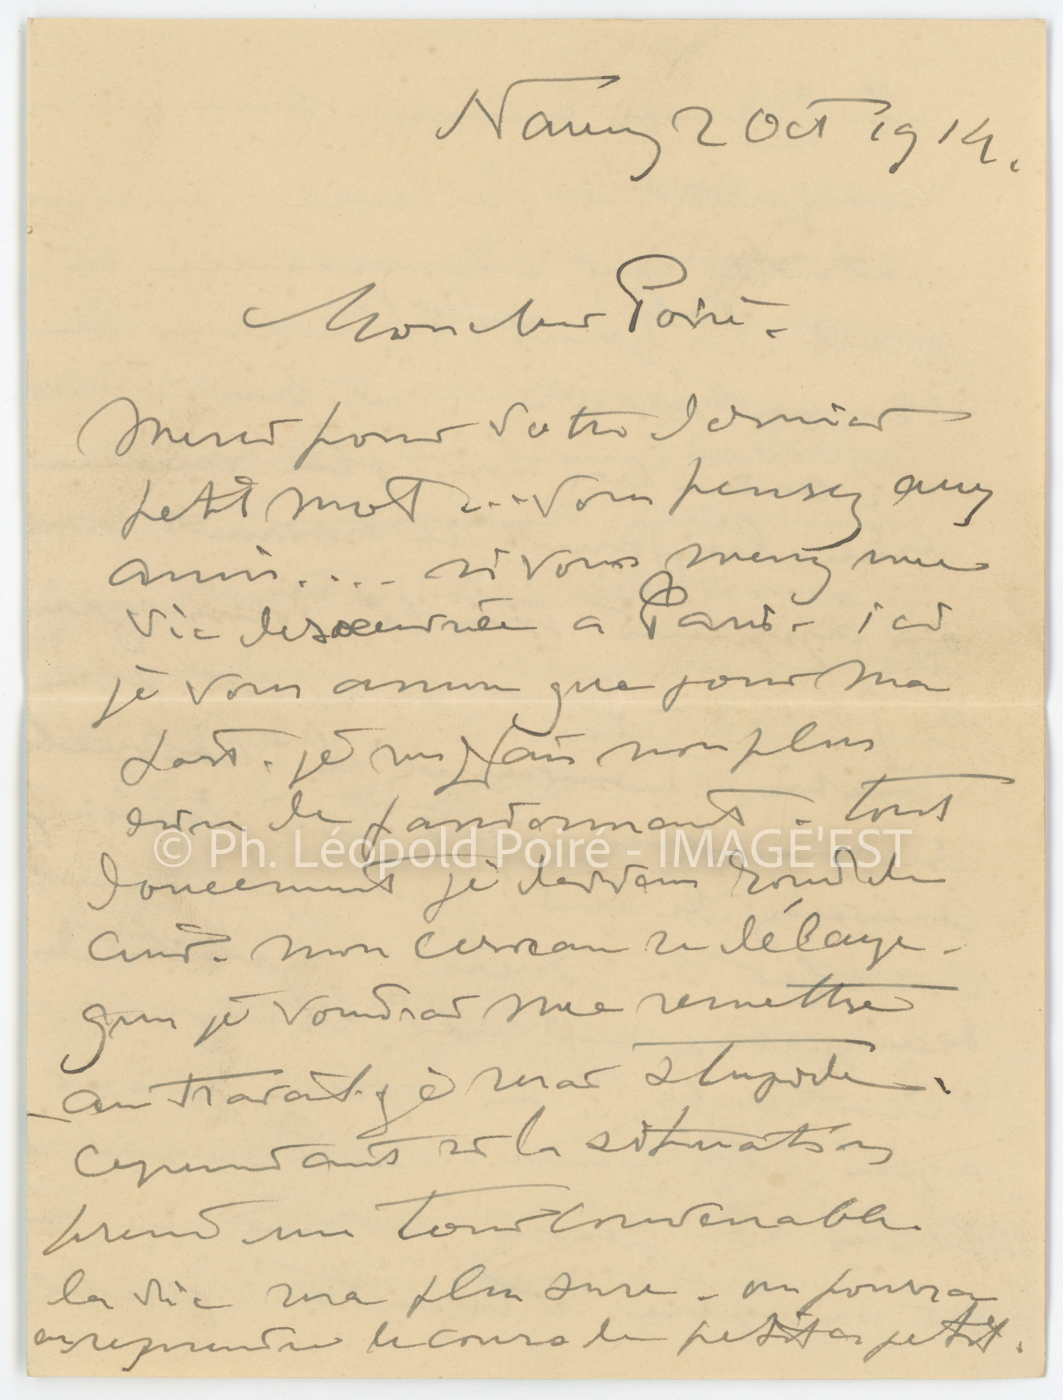 Nancy 2 Oct 1914.
Mon cher Poiré.
Merci pour votre dernier
petit mot ... vous pensez que
amis .... si vous menez une
vie desoeuvrée a Paris. ici
je vous assure que pour ma
part. je ne fais non plus
rien de
tout
© Ph. Léopold Poiré - IMAGE'EST
doucement je deviens
mon cerveau se délaye.
quand je voudrai me remettre
au travail. je serai stupide.
cependant si la situation
prend une convenable
la vie sera plus sure. on pourra
reprendre le cours de petit a petit.